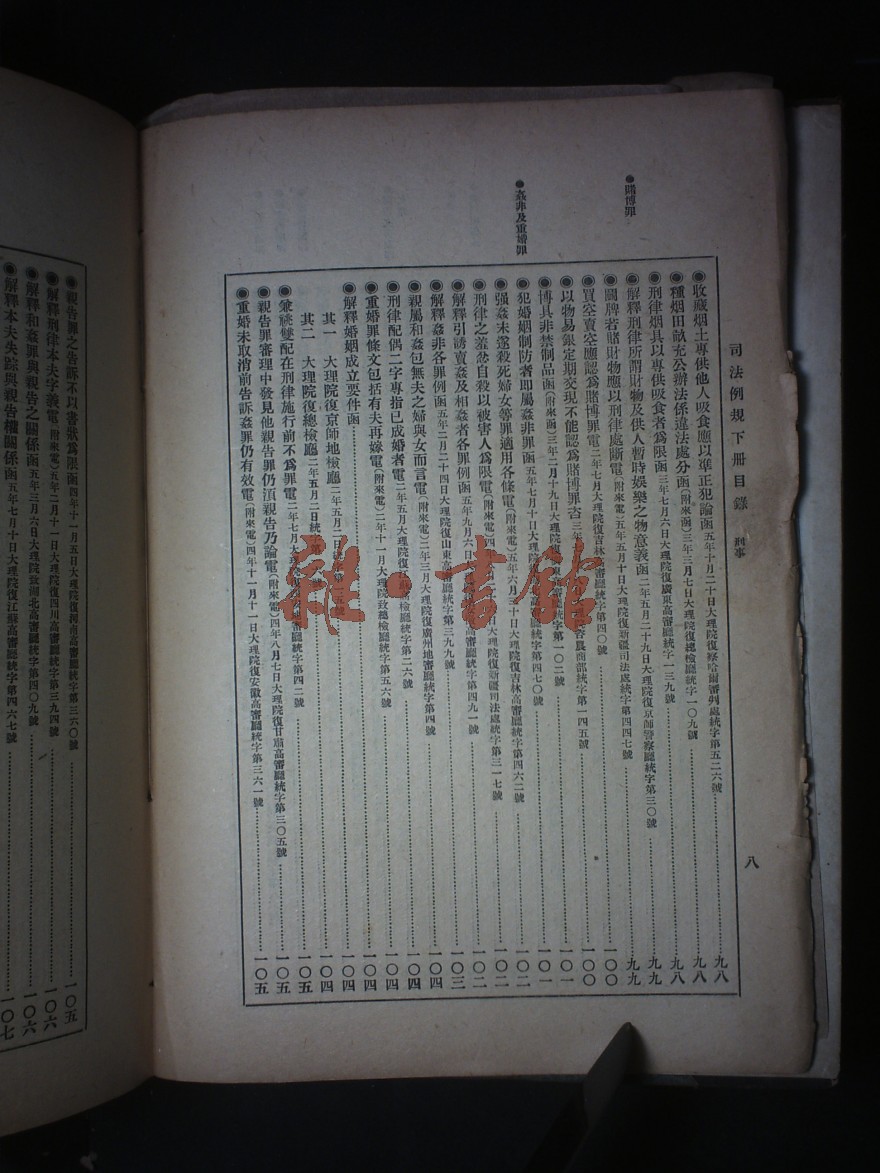 司法例規下冊目錄 刑事
八
收藏烟土專供他人吸食應以準正犯論函五年十月二十日大理院復察哈爾審判處統字第五二六號 九八
種烟田畝充公辦法係違法處分函(附來函)三年三月七日大理院復總檢廳統字一〇九號 九八
刑律烟具以專供吸食者爲限函三年七月六日大理院復廣東高審廳統字一三九號 九八
●賭博罪
解釋刑律所謂財物及供人暫時娛樂之物意義函二年五月二十九日大理院復京師警察廳統字第三〇號 九九
鬬牌若賭財物應以刑律處斷電(附來電)五年五月十日大理院復新疆司法處統字第四四七號 九九
買空賣空應認爲賭博罪電二年七月大理院復吉林高審廳統字第四〇號 一〇〇
以物易銀定期交現不能認爲賭博罪咨三年 農商部統字第一四五號 一〇〇
博具非禁制品函(附來函)三年二月十九日大理院復 統字第一〇二號 一〇一
●姦非及重婚罪
犯婚姻制防者即屬姦非罪函五年七月十日大理院復 高審廳統字第四七〇號 一〇一
强姦未遂殺死婦女等罪適用各條電(附來電)五年六月三十日大理院復吉林高審廳統字第四六二號 一〇二
刑律之羞忿自殺以被害人爲限電(附來電)四 大理院復新疆司法處統字第三一七號 一〇二
解釋引誘賣姦及相姦者各罪例函五年九月六日 高審廳統字第四九一號 一〇二
解釋姦非各罪例函五年二月二十四日大理院復山東高審廳統字第三九九號 一〇三
親屬和姦包無夫之婦與女而言電(附來電)二年三月大理院復廣州地審廳統字第四號 一〇四
刑律配偶二字專指已成婚者電二年五月大理院復 檢廳統字第二六號 一〇四
重婚罪條文包括有夫再嫁電(附來電)二年十一月大理院致總檢廳統字第五六號 一〇四
解釋婚姻成立要件函 一〇四
其一 大理院復京師地檢廳二年五月 一〇四
其二 大理院復總檢廳二年五月二日統 號 一〇五
兼祧雙配在刑律施行前不爲罪電二年七月大理院復 高審廳統字第四二號 一〇五
親告罪審理中發見他親告罪仍須親告乃論電(附來電)四年八月七日大理院復甘肅高審廳統字第三〇五號 一〇五
重婚未取消前告訴姦罪仍有效電(附來電)四年十一月十一日大理院復安徽高審廳統字第三六一號 一〇五
親告罪之告訴不以書狀爲限函四年十一月五日大理院復河南高審廳統字第三六〇號 一〇五
解釋刑律本夫字義電(附來電)五年二月十一日大理院復四川高審廳統字第三九四號 一〇六
解釋和姦罪與親告之關係函五年三月六日大理院復湖北高審廳統字第四〇九號 一〇六
解釋本夫失踪與親告權關係函五年七月十日大理院復江蘇高審廳統字第四六七號 一〇七
雜·書館